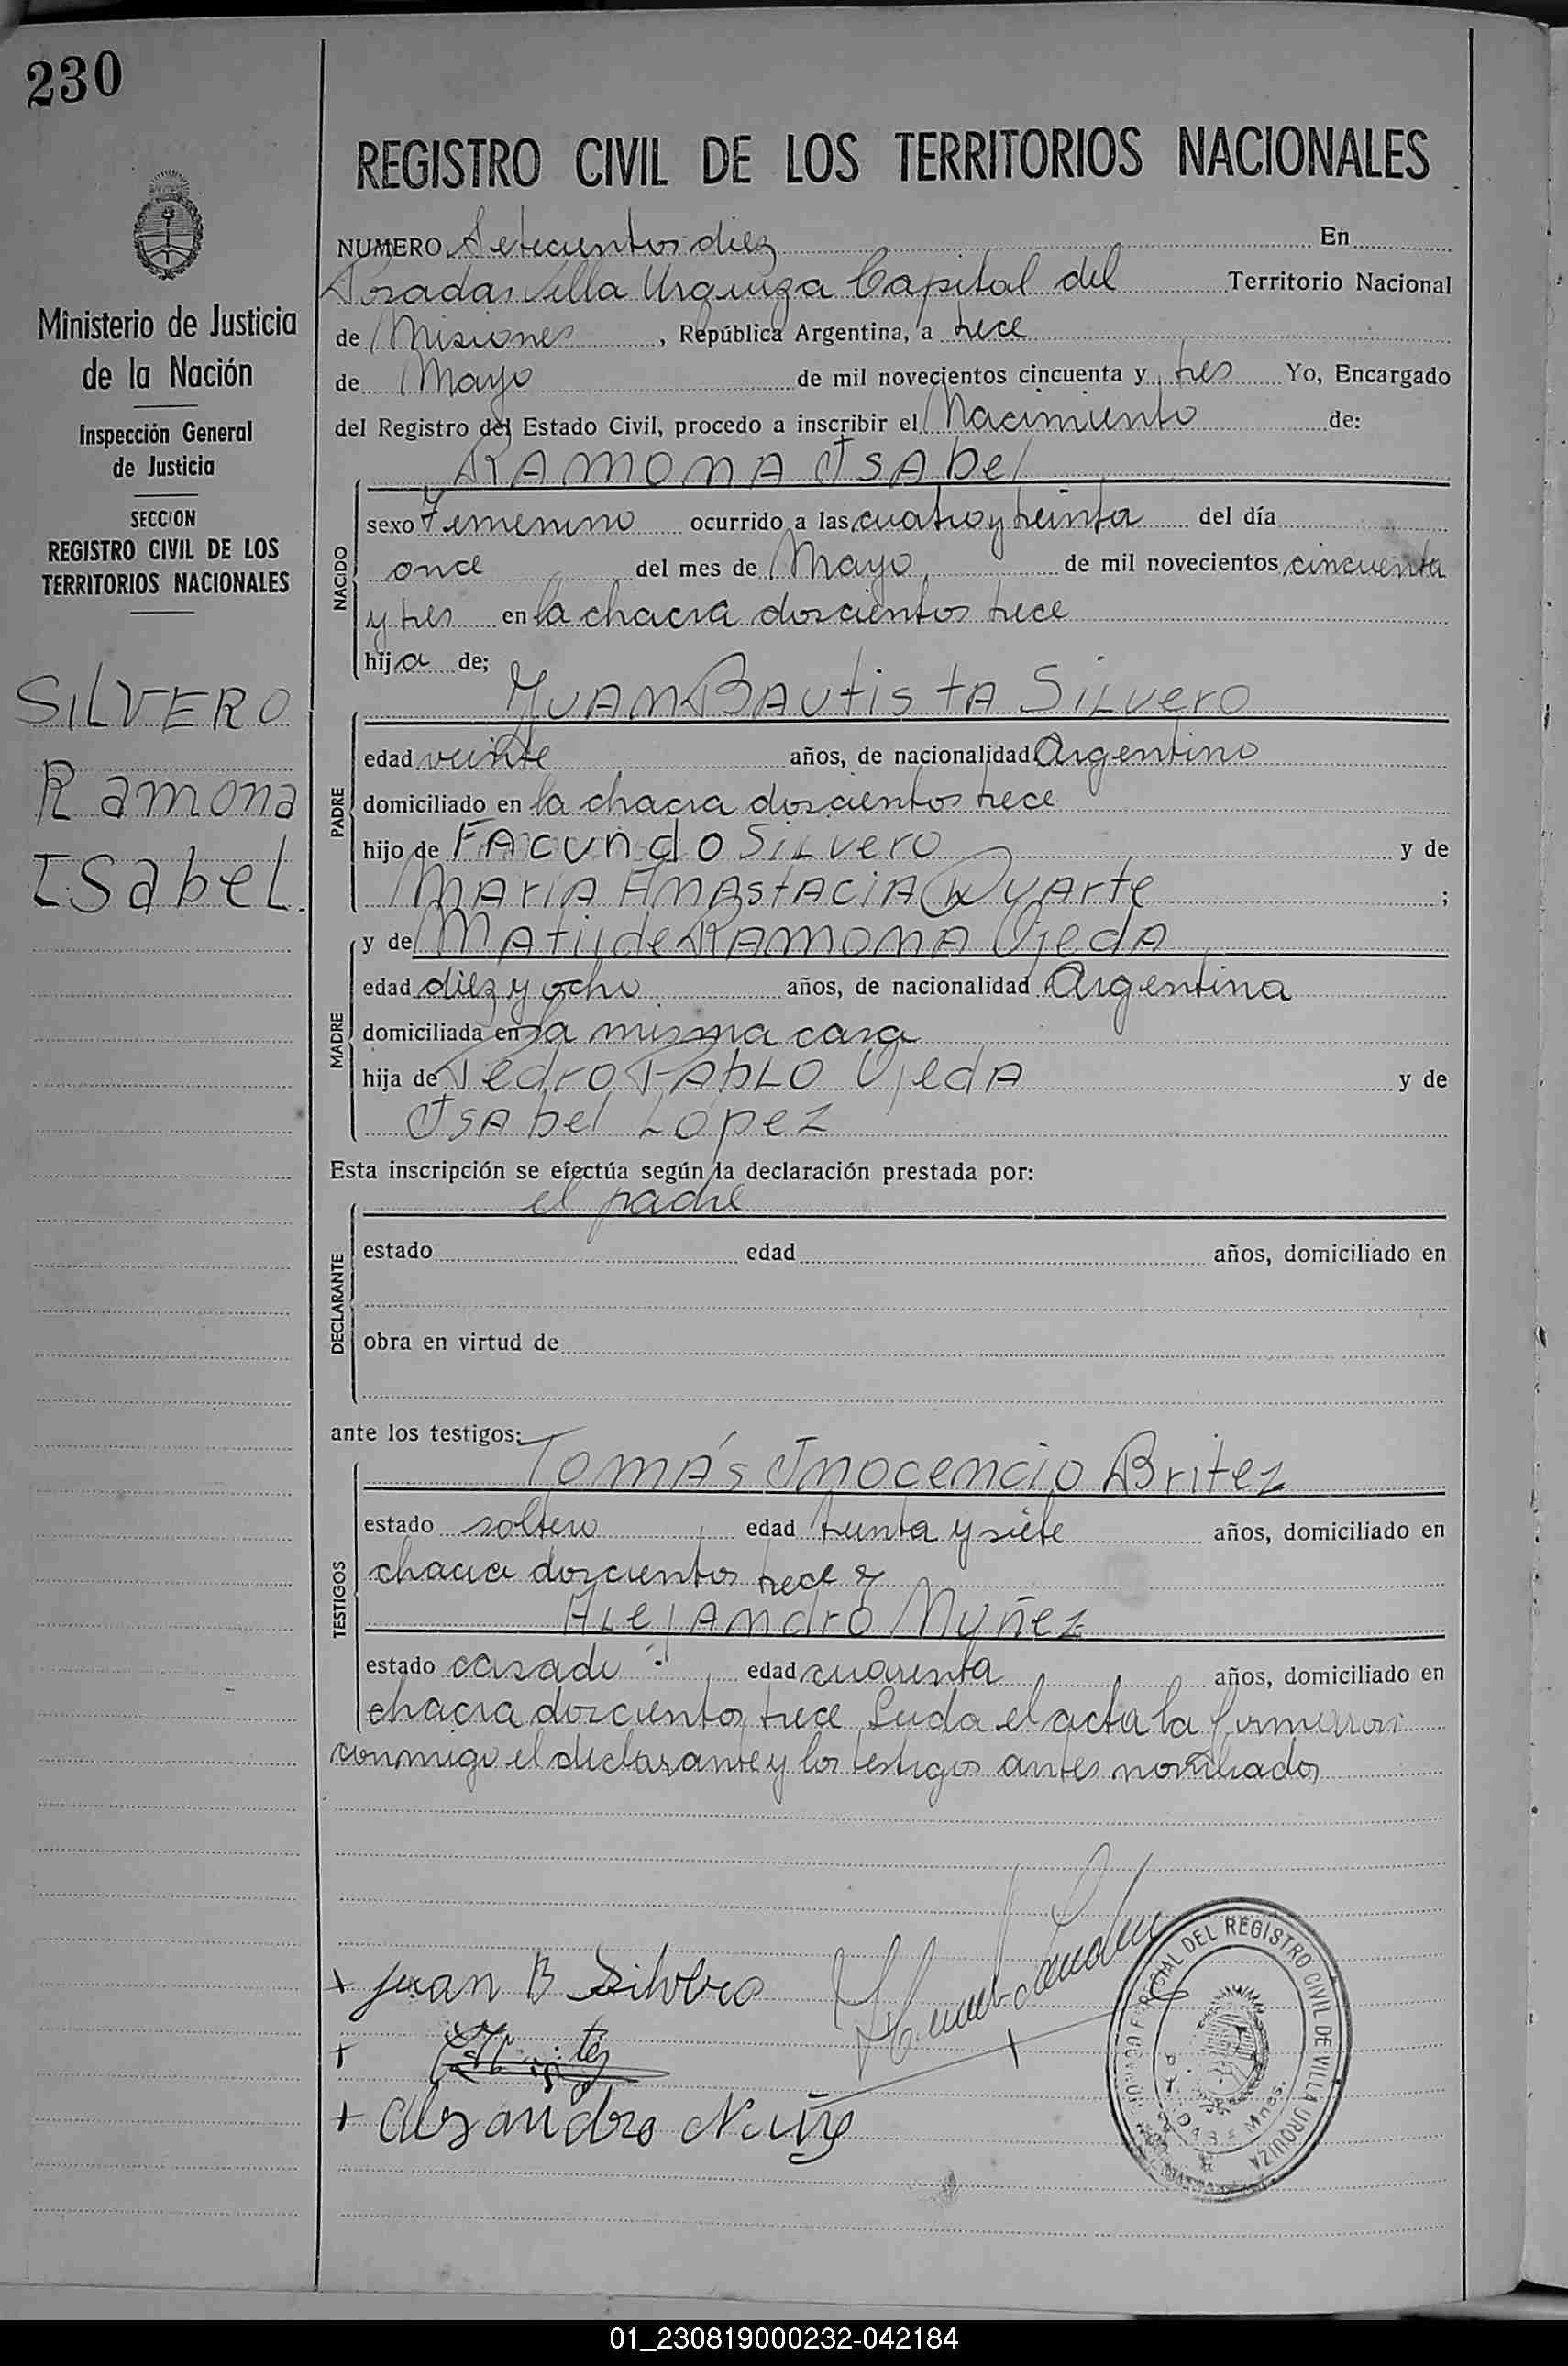 230
Ministerio de Justicia
de la Nación
Inspección General
de Justicia
SECCION
REGISTRO CIVIL DE LOS
TERRITORIOS NACIONALES
SILVERO
Ramona
ISabel.
REGISTRO CIVIL DE LOS TERRITORIOS NACIONALES
NUMERO Setecientos diez En
Posadas Villa Urquiza Capital del Territorio Nacional
de Misiones, República Argentina, a trece
de Mayo de mil novecientos cincuenta y tres Yo, Encargado
del Registro del Estado Civil, procedo a inscribir el Nacimiento de:
RAMONA ISAbel
NACIDO
sexo Femenino ocurrido a las cuatro y treinta del día
once del mes de Mayo de mil novecientos cincuenta
y tres en la chacra doscientos trece
hija de;
JUAN BAUtistA SiLvero
PADRE
edad veinte años, de nacionalidad Argentino
domiciliado en la chacra doscientos trece
hijo de FAcundo SiLvero y de
MAriA ANAStACiA DUArte ;
MADRE
y de MAtilde RAMONA OjedA
edad diez y ocho años, de nacionalidad Argentina
domiciliada en la misma casa
hija de Pedro PAbLO OjedA y de
ISAbel Lopez
Esta inscripción se efectúa según la declaración prestada por:
el padre
DECLARANTE
estado edad años, domiciliado en
obra en virtud de
ante los testigos:
TOMÁs INOCENCIO Britez
TESTIGOS
estado soltero edad treinta y siete años, domiciliado en
chacra doscientos trece y
ALejANdrO NUÑez
estado casado edad cuarenta años, domiciliado en
chacra doscientos trece Leida el acta la firmaron
conmigo el declarante y los testigos antes nombrados
x Juan B Silvero
+
+ Alejandro Nuñe
REGISTRO CIVIL DE VILLA URQUIZA
01_230819000232-042184